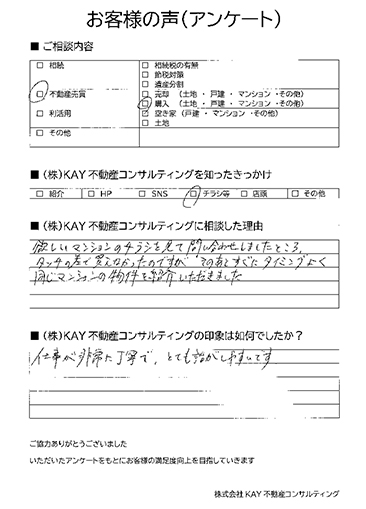 お客様の声(アンケート)
■ ご相談内容
□ 相続 □ 相続税の有無
□ 節税対策
□ 遺産分割
□ 不動産売買 □ 売却 (土地 ・ 戸建 ・ マンション ・その他)
□ 購入 (土地 ・ 戸建 ・ マンション ・その他)
□ 利活用 ☑ 空き家 (戸建 ・ マンション ・ その他)
□ 土地
□ その他
■ (株)KAY 不動産コンサルティングを知ったきっかけ
□ 紹介 □ HP □ SNS □ チラシ等 □ 店頭 □ その他
■ (株)KAY 不動産コンサルティングに相談した理由
欲しいマンションのチラシを見て問い合わせしましたところ、
タッチの差で買えなかったのですが、そのあとすぐにタイミングよく
同じマンションの物件を紹介いただきました
■ (株)KAY 不動産コンサルティングの印象は如何でしたか?
仕事が非常に丁寧で、とても話がしやすいです
ご協力ありがとうございました
いただいたアンケートをもとにお客様の満足度向上を目指していきます
株式会社 KAY 不動産コンサルティング